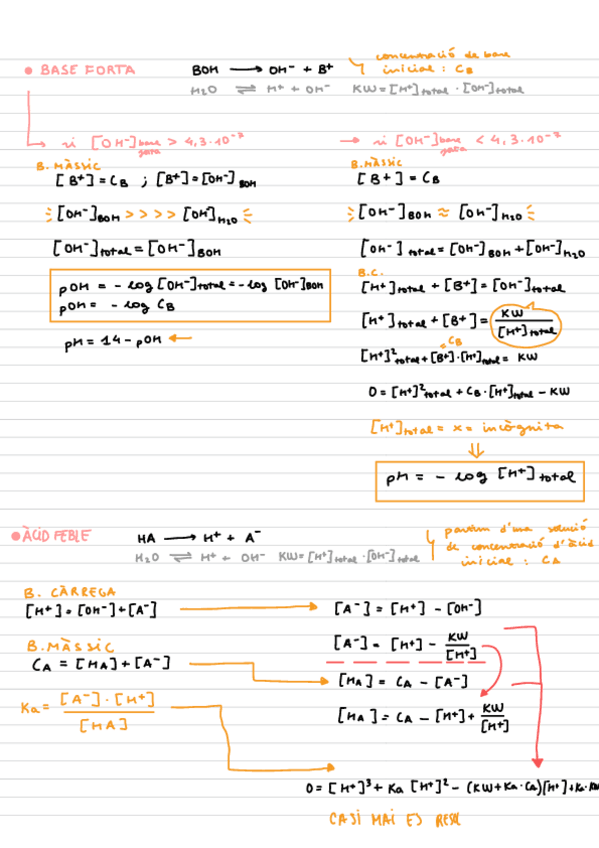 • BASE FORTA
BOH → OH⁻ + B⁺
concentració de base
inicial : CB
H2O ⇌ H⁺ + OH⁻ KW=[H⁺]total · [OH⁻]total
→ si [OH⁻]base > 4,3·10⁻⁷
B. MÀSSIC
[B⁺] = CB ; [B⁺]=[OH⁻]BOH
[OH⁻]BOH >>>> [OH]H2O
[OH⁻]total = [OH⁻]BOH
pOH = - log [OH⁻]total = - log [OH⁻]BOH
pOH = - log CB
pH = 14 - pOH ←
→ si [OH⁻]base < 4,3·10⁻⁷
B. MÀSSIC
[B⁺] = CB
[OH⁻]BOH ≈ [OH⁻]H2O
[OH⁻]total = [OH⁻]BOH + [OH⁻]H2O
B.C.
[H⁺]total + [B⁺] = [OH⁻]total
[H⁺]total + [B⁺] = KW / [H⁺]total
= CB
[H⁺]²total + [B⁺]·[H⁺]total = KW
0 = [H⁺]²total + CB·[H⁺]total - KW
[H⁺]total = x = incògnita
⇓
pH = - log [H⁺]total
• ÀCID FEBLE
HA → H⁺ + A⁻
H2O ⇌ H⁺ + OH⁻ KW=[H⁺]total · [OH⁻]total
partim d'una solució
de concentració d'àcid
inicial : CA
B. CÀRREGA
[H⁺] = [OH⁻] + [A⁻] → [A⁻] = [H⁺] - [OH⁻]
[A⁻] = [H⁺] - KW / [H⁺]
B. MÀSSIC
CA = [HA] + [A⁻] → [HA] = CA - [A⁻]
[HA] = CA - [H⁺] + KW / [H⁺]
Ka = [A⁻]·[H⁺] / [HA]
0 = [H⁺]³ + Ka [H⁺]² - (KW + Ka·CA)[H⁺] + Ka·KW
CASI MAI ES RESOL